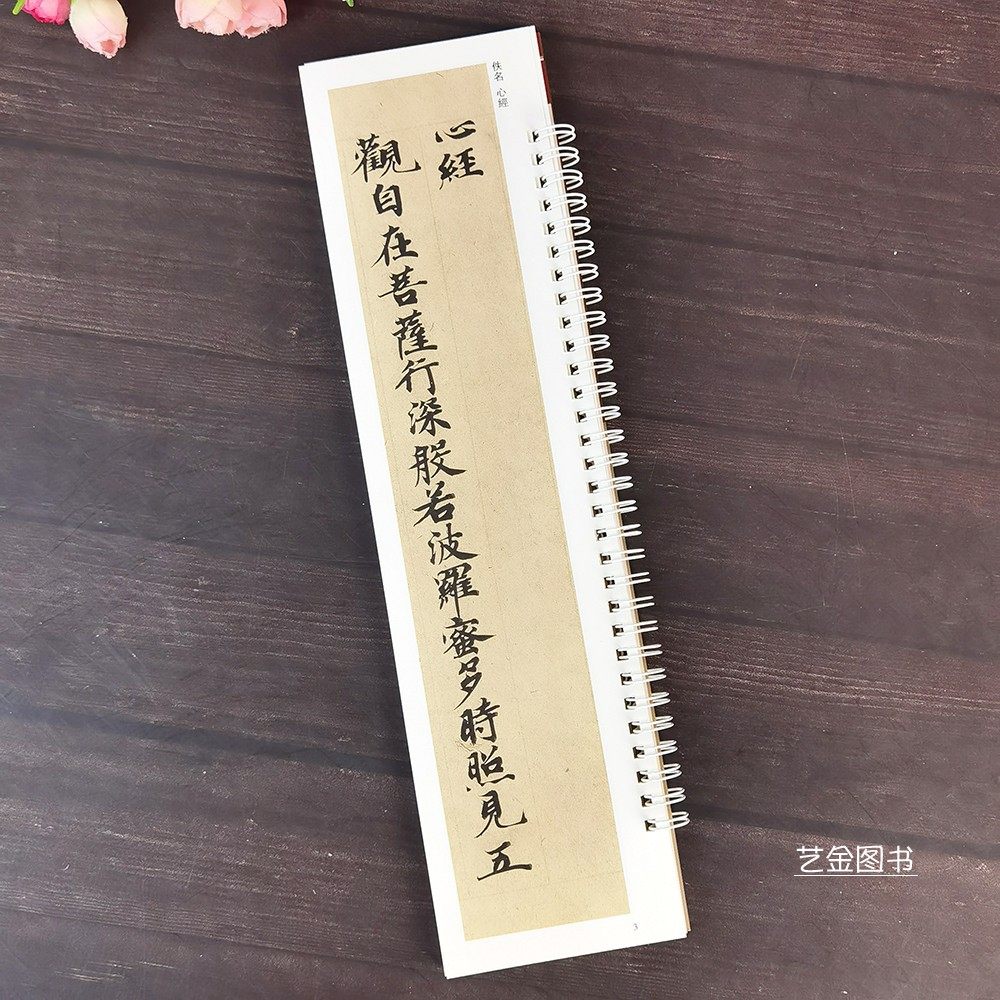 佚名 心經
心經
觀自在菩薩行深般若波羅蜜多時照見五
3
艺金图书